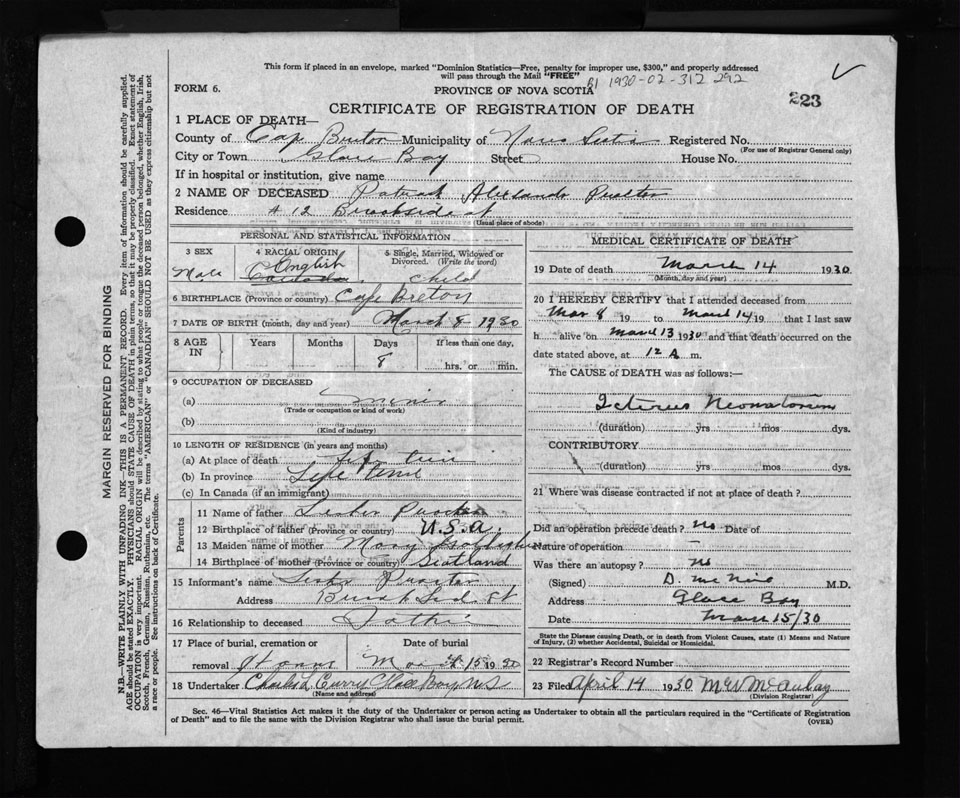 This form if placed in an envelope, marked "Dominion Statistics—Free, penalty for improper use, $300," and properly addressed
will pass through the Mail "FREE"
1930-02-312 292
223
FORM 6.
PROVINCE OF NOVA SCOTIA
CERTIFICATE OF REGISTRATION OF DEATH
1 PLACE OF DEATH—
County of Cap Breton Municipality of Nova Scotia Registered No.
(For use of Registrar General only)
City or Town Glace Bay Street House No.
If in hospital or institution, give name
2 NAME OF DECEASED Patrick Alexander
Residence # 12 Brookside st
(Usual place of abode)
PERSONAL AND STATISTICAL INFORMATION
3 SEX Male
4 RACIAL ORIGIN English Canadian
5 Single, Married, Widowed or Divorced. (Write the word) child
6 BIRTHPLACE (Province or country) Cape Breton
7 DATE OF BIRTH (month, day and year) March 8 1930
8 AGE IN Years Months Days 8 If less than one day, hrs. or min.
9 OCCUPATION OF DECEASED
(a) miner
(Trade or occupation or kind of work)
(b)
(Kind of industry)
10 LENGTH OF RESIDENCE (in years and months)
(a) At place of death
(b) In province Life time
(c) In Canada (if an immigrant)
Parents
11 Name of father Lester
12 Birthplace of father (Province or country) U.S.A.
13 Maiden name of mother Mary
14 Birthplace of mother (Province or country) Scotland
15 Informant's name Lester
Address St
16 Relationship to deceased Father
17 Place of burial, cremation or removal St Anns
Date of burial Mar 15 1930
18 Undertaker Charles L Curry Glace Bay NS
(Name and address)
MEDICAL CERTIFICATE OF DEATH
19 Date of death March 14 1930
(Month, day and year)
20 I HEREBY CERTIFY that I attended deceased from
Mar 8 19 to March 14 19 that I last saw
h alive on March 13 1930 and that death occurred on the
date stated above, at 12 A m.
The CAUSE of DEATH was as follows:—
Icterus Neonatorum
(duration) yrs mos dys.
CONTRIBUTORY
(duration) yrs mos dys.
21 Where was disease contracted if not at place of death?
Did an operation precede death? no Date of
Nature of operation —
Was there an autopsy? no
(Signed) D. M.D.
Address Glace Bay
Date Mar 15/30
State the Disease causing Death, or in death from Violent Causes, state (1) Means and Nature
of Injury, (2) whether Accidental, Suicidal or Homicidal.
22 Registrar's Record Number
23 Filed April 14 1930 McAulay
(Division Registrar)
Sec. 46—Vital Statistics Act makes it the duty of the Undertaker or person acting as Undertaker to obtain all the particulars required in the "Certificate of Registration
of Death" and to file the same with the Division Registrar who shall issue the burial permit.
(OVER)
MARGIN RESERVED FOR BINDING
N.B.—WRITE PLAINLY WITH UNFADING INK—THIS IS A PERMANENT RECORD. Every item of information should be carefully supplied.
AGE should be stated EXACTLY. PHYSICIANS should STATE CAUSE OF DEATH in plain terms, so that it may be properly classified. Exact statement of
OCCUPATION is very important. RACIAL ORIGIN will be described by stating to what people or tongue the deceased person belonged, whether English, Irish,
Scotch, French, German, Russian, Ruthenian, etc. The terms "AMERICAN" or "CANADIAN" SHOULD NOT BE USED as they express citizenship but not
a race or people. See instructions on back of Certificate.